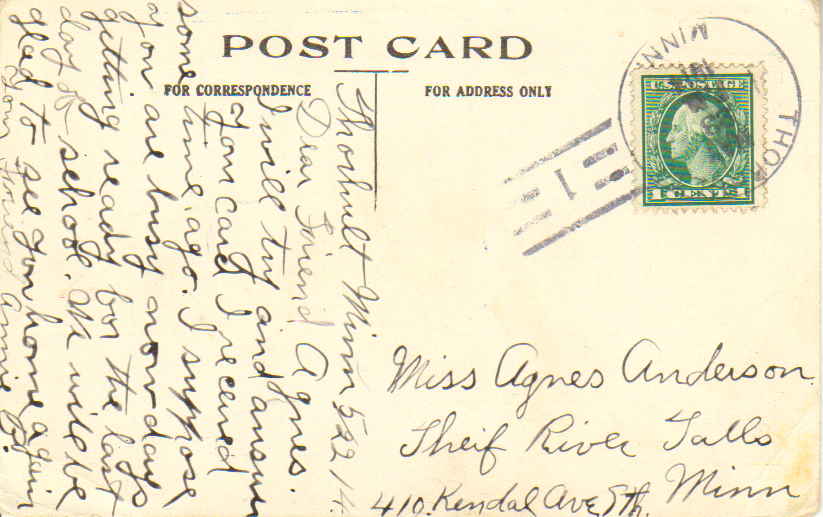 POST CARD
FOR CORRESPONDENCE
FOR ADDRESS ONLY
Thorhult Minn 5 22 14
Dear Friend Agnes.
I will try and answer
your card I received
some time ago. I suppose
you are busy now days
getting ready for the last
day of school. We will be
glad to see you home again
Your Friend Annie
Miss Agnes Anderson
Theif River Falls
410. Kendal Ave Minn
U.S. POSTAGE
1 CENT 1
MINN
THO
1